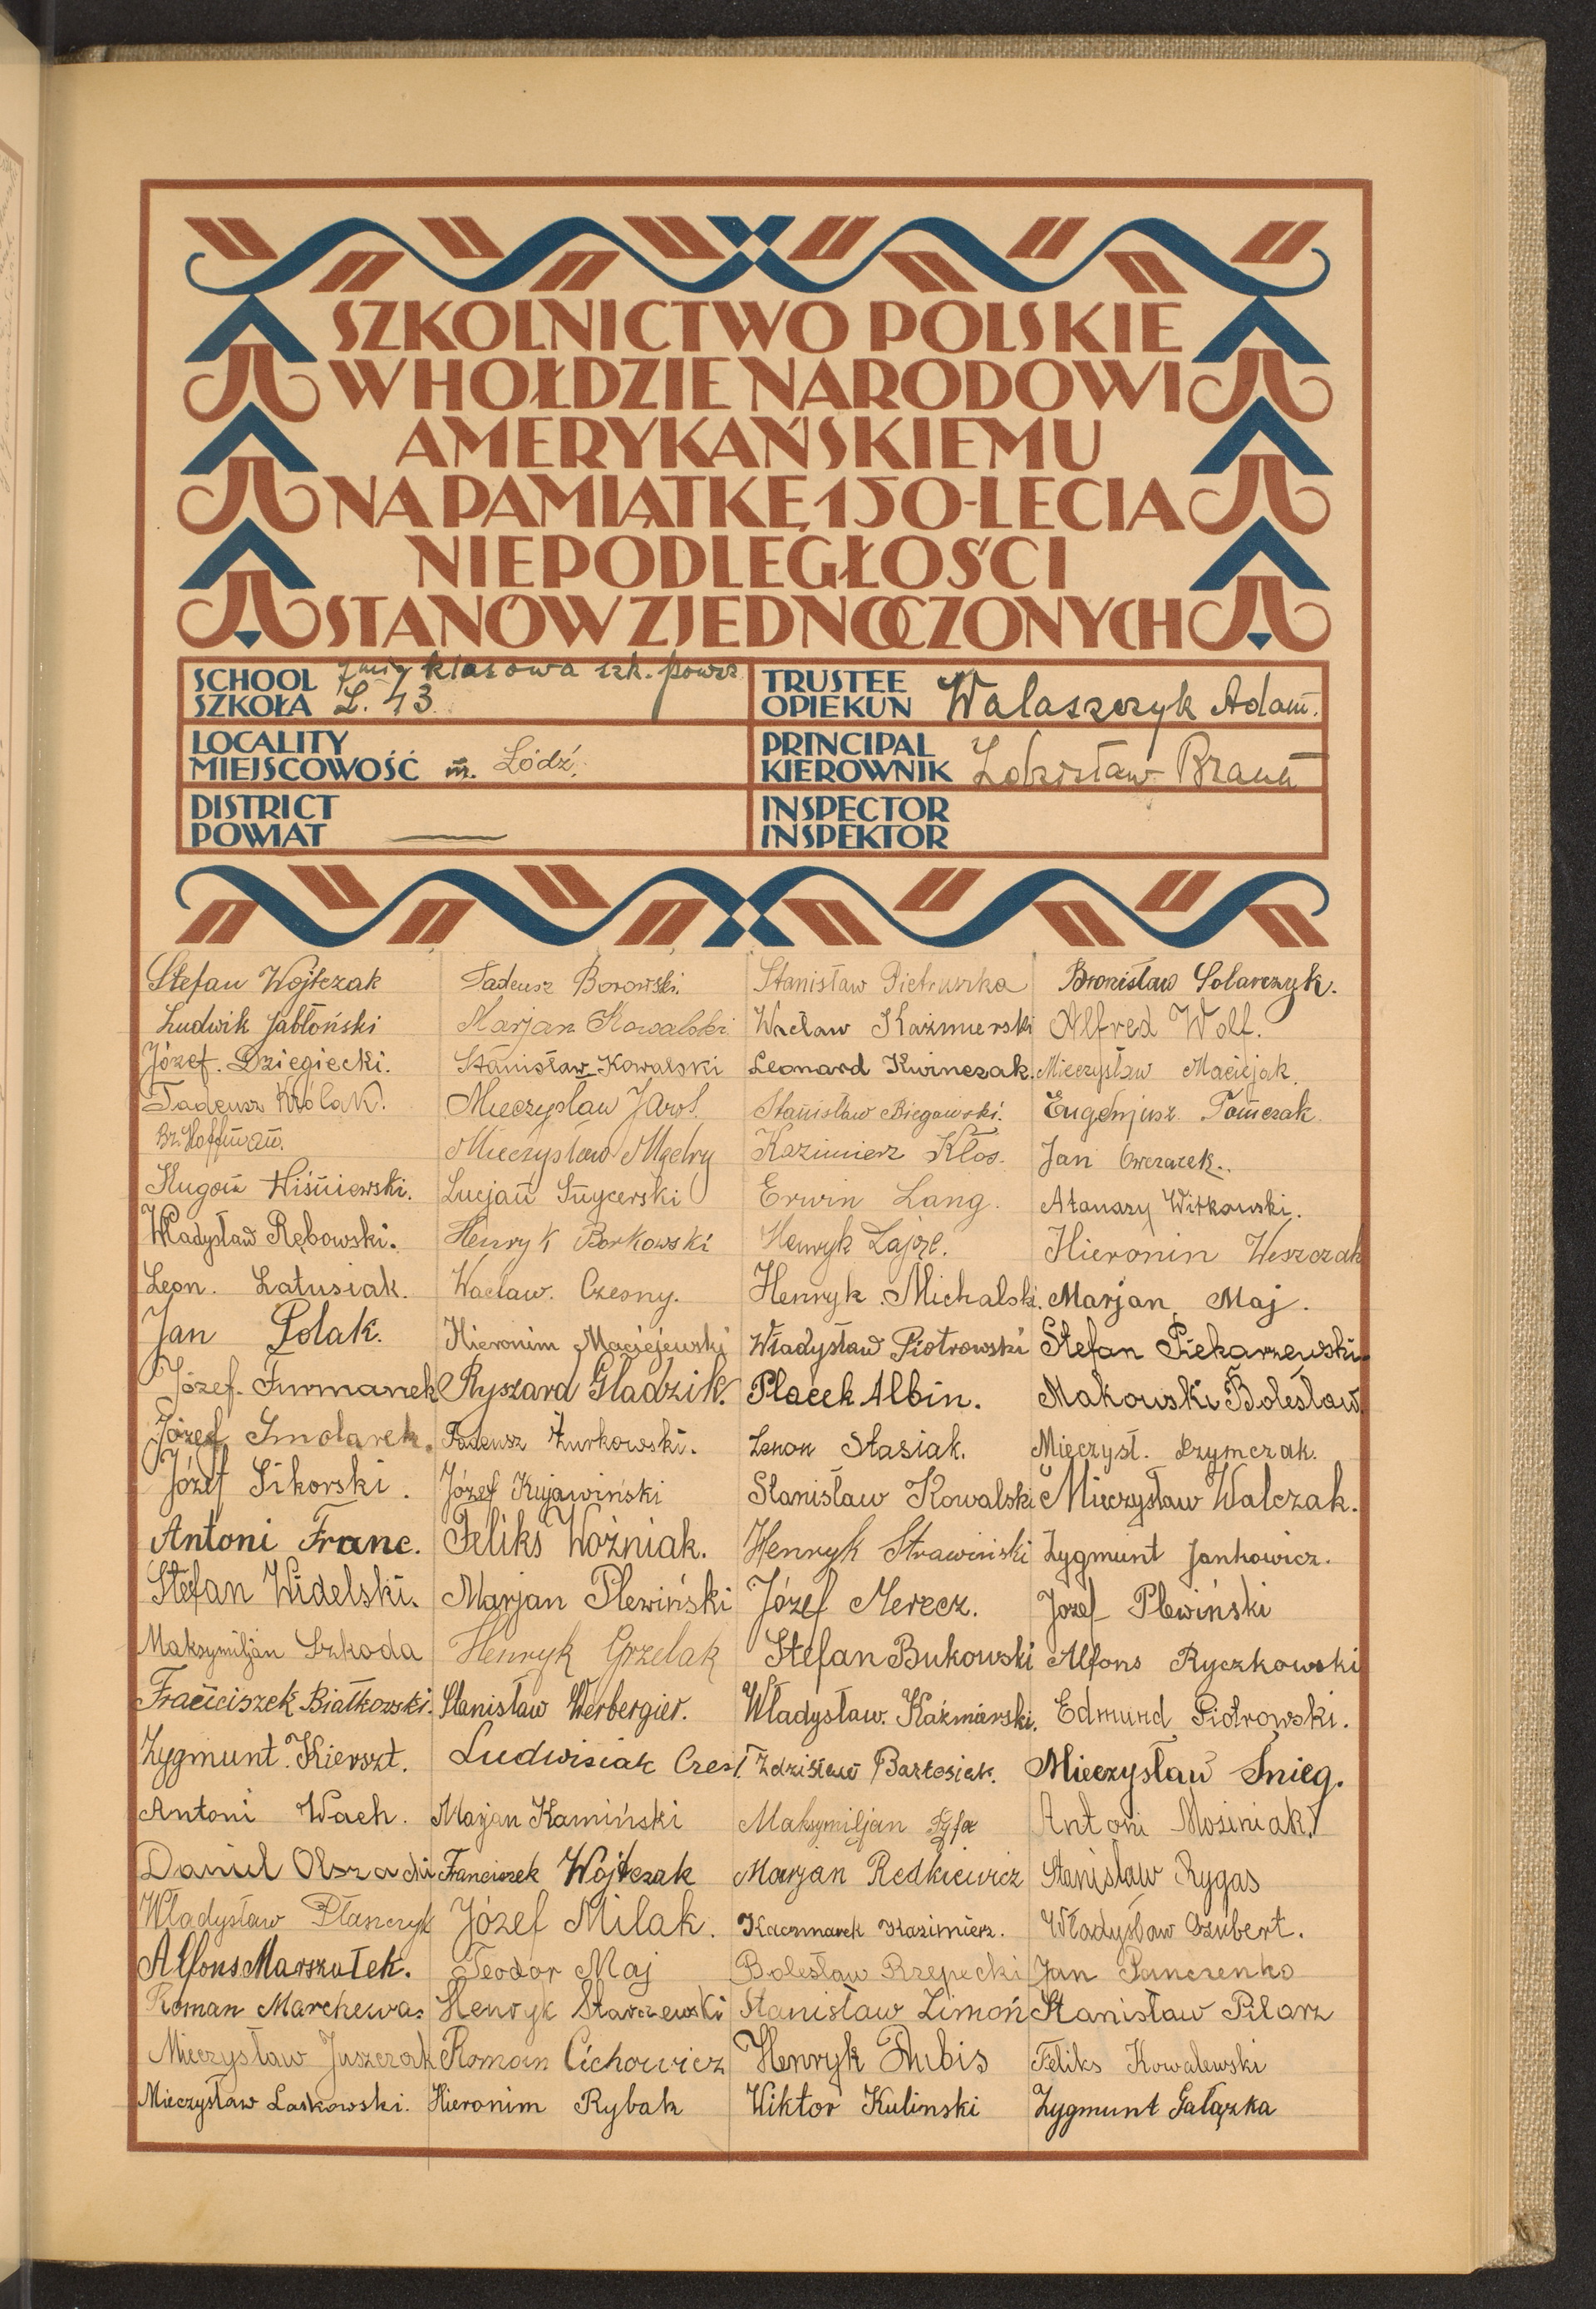 SZKOLNICTWO POLSKIE
W HOŁDZIE NARODOWI
AMERYKAŃSKIEMU
NA PAMIĄTKĘ 150-LECIA
NIEPODLEGŁOŚCI
STANÓW ZJEDNOCZONYCH
SCHOOL klasowa szk. powsz.
SZKOŁA L. 43
TRUSTEE
OPIEKUN Walaszczyk Adam.
LOCALITY
MIEJSCOWOŚĆ m. Łódź.
PRINCIPAL
KIEROWNIK Zdzisław Braun
DISTRICT
POWIAT
INSPECTOR
INSPEKTOR
Stefan Wojtczak
Ludwik Jabłoński
Józef. Dziegiecki.
Tadeusz Królak.
Br. Hoffman.
Hugon Wiśniewski.
Władysław Rębowski.
Leon. Latusiak.
Jan Polak.
Józef. Furmanek
Józef Smolarek.
Józef Sikorski.
Antoni Franc.
Stefan Widelski.
Maksymiljan Szkoda
Franciszek Białkowski.
Zygmunt Kierszt.
Antoni Wach.
Daniel
Władysław Płanczyk
Alfons Marszałek.
Roman Marchewa.
Mieczysław Juszczak
Mieczysław Laskowski.
Tadeusz Borowski.
Marjan Kowalski
Stanisław Kowalski
Mieczysław Jaros.
Mieczysław Mądry
Lucjan Snycerski
Henryk Borkowski
Wacław. Czesny.
Hieronim Maciejewski
Ryszard Gladzik.
Tadeusz Żurkowski.
Józef Kujawiński
Feliks Woźniak.
Marjan Plewiński
Henryk Grzelak
Stanisław Werbergier.
Ludwisiak Czesł.
Marjan Kamiński
Franciszek Wojtczak
Józef Milak.
Teodor Maj
Henryk Starczewski
Roman Cichowicz
Hieronim Rybak
Stanisław Pietruszka
Wacław Kaźmierski
Leonard Kwinczak.
Stanisław Biegowski.
Kazimierz Kłos.
Erwin Lang.
Henryk Zając.
Henryk. Michalski.
Władysław Piotrowski
Placek Albin.
Zenon Stasiak.
Stanisław Kowalski
Henryk Strawiński
Józef Merecz.
Stefan Bukowski
Władysław. Kaźmierski.
Zdzisław Bartosiak.
Maksymiljan
Marjan Redkiewicz
Kaczmarek Kazimierz.
Bolesław Rzepecki
Stanisław Zimoń
Henryk Dubis
Wiktor Kulinski
Bronisław Solarczyk.
Alfred Wolf.
Mieczysław Maciejak.
Eugenjusz Tomczak.
Jan Owczarek.
Atanazy Witkowski.
Hieronin Weszczak
Marjan Maj.
Stefan Piekarzewski.
Makowski Bolesław.
Mieczysł. Szymczak.
Mieczysław Walczak.
Zygmunt Jankowicz.
Józef Plewiński
Alfons Ryczkowski
Edmund Piotrowski.
Mieczysław Śnieg.
Antoni Moźniak.
Stanisław Rygas
Władysław Szubert.
Jan Panczenko
Stanisław Pilarz
Feliks Kowalewski
Zygmunt Gałązka